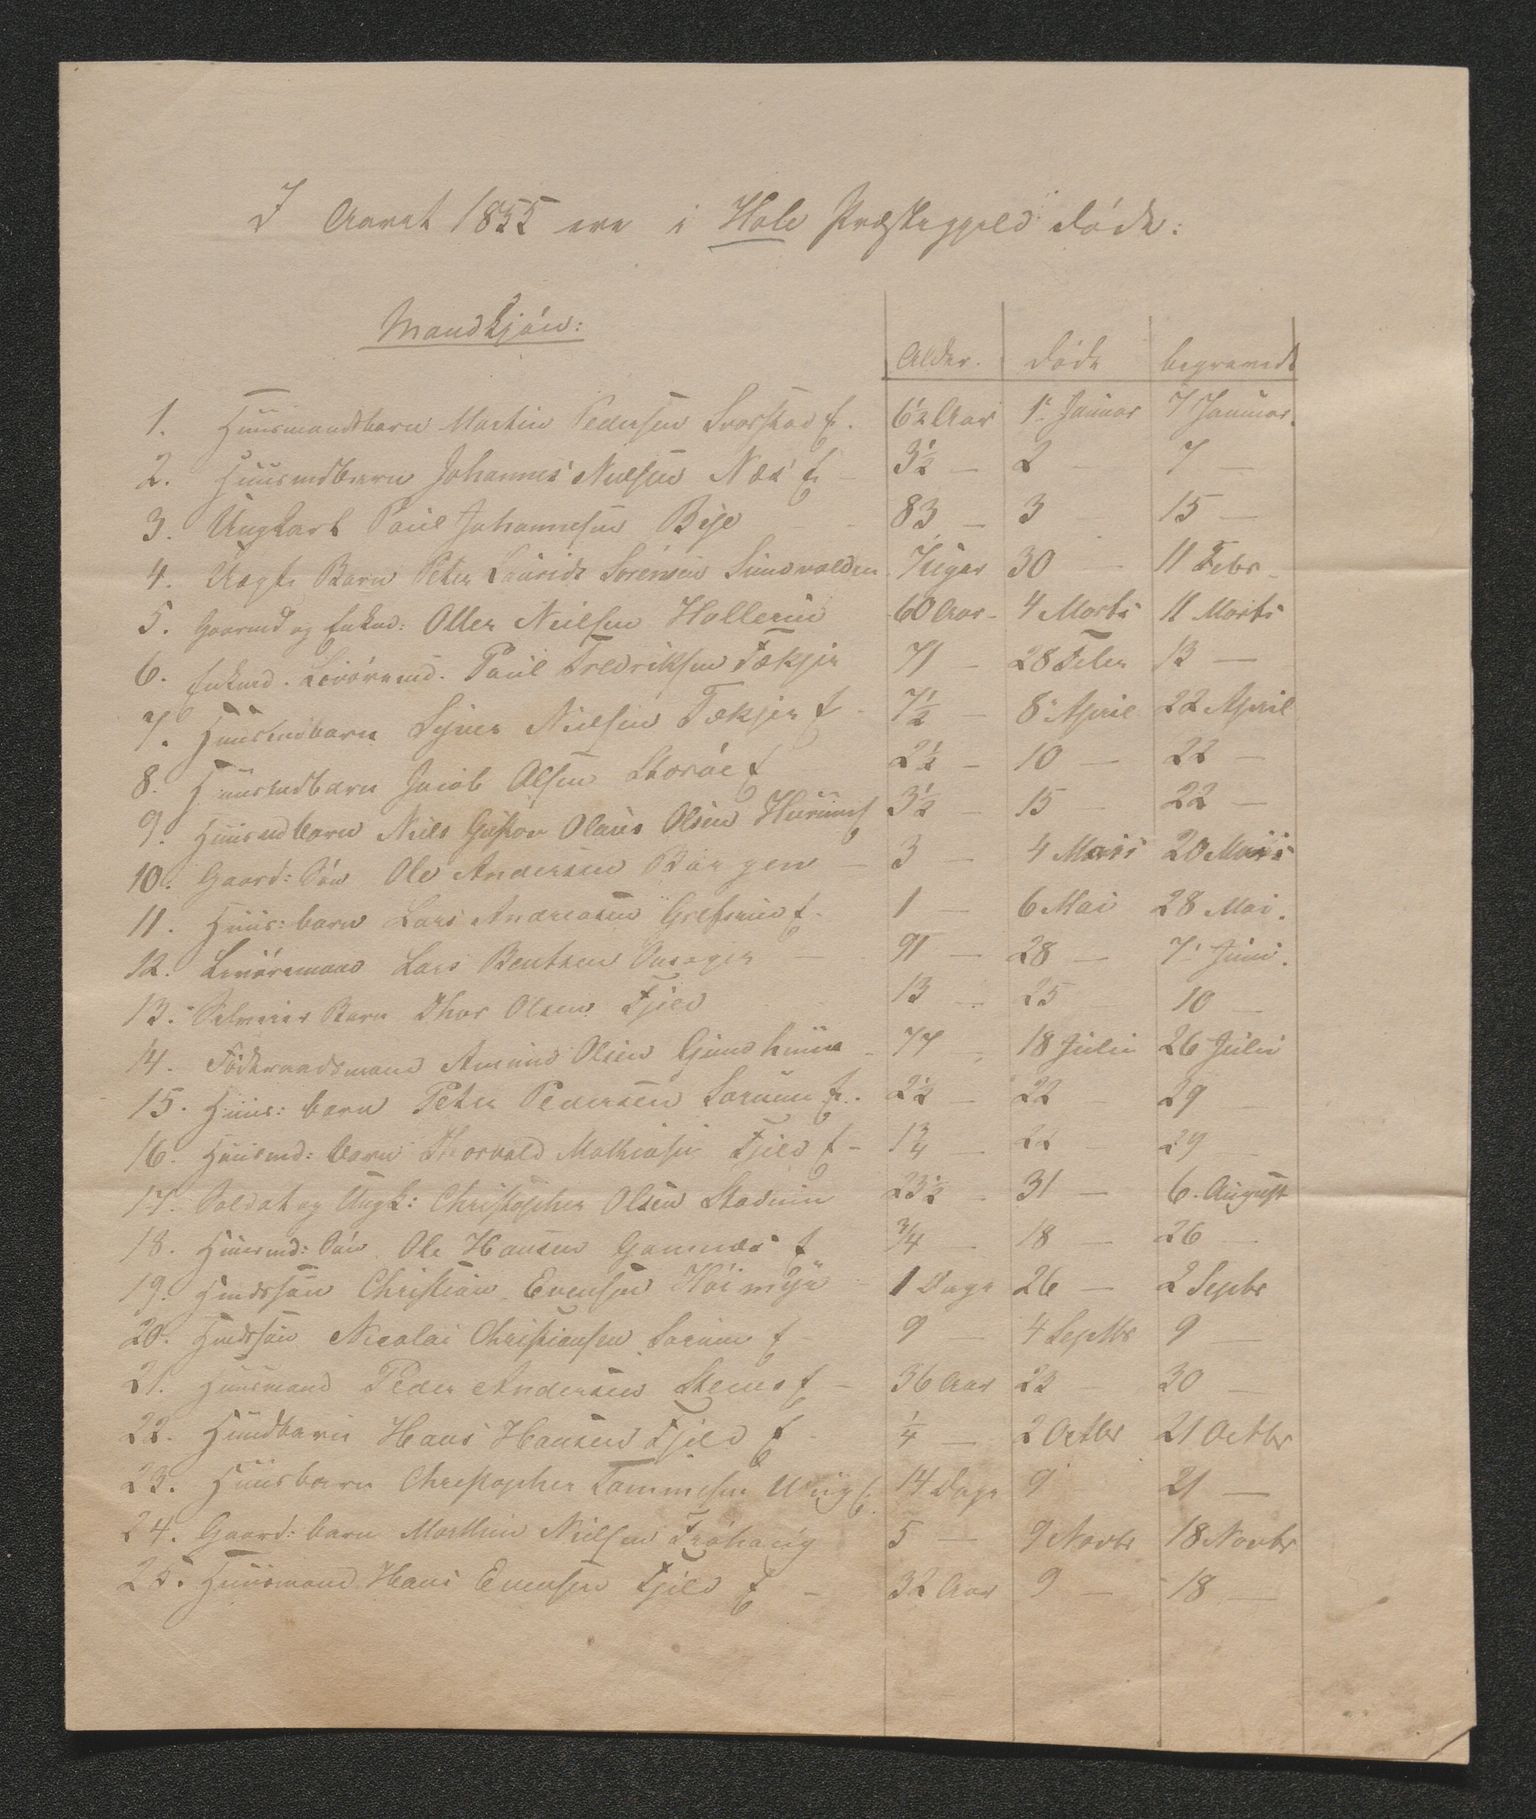 I Aaret 1855 ere i Hole Præstegjeld døde:
Mandkjøn:
Alder. døde begravede
1. Huusmandsbarn Martin Pedersen Svarstad E. 6½ Aar 1. Januar 7 Januar.
2. Huusmdbarn Johannes Nielsen Næs E – 3½ – 2 – 7 –
3. Ungkarl Paul Johannesen Bye – 83 – 3 – 15 –
4. Uægte Barn Peter Laurids Sørensen Sundvolden 7 Uger 30 – 11 Febr.
5. Gaarmd og Enkmd: Nielsen 60 Aar – 4 Marts 11 Marts
6. Enkmd. Paul Fredriksen 71 – 28 Feber 13 –
7. Huusmdbarn Nielsen E – 7½ – 8. April 22 April
8. Huusmdbarn Jacob Olsen Storøe E 2½ – 10 – 22 –
9. Huusmdbarn Niels Gustav Olaus Olsen 3½ – 15 – 22 –
10. Gaard: Søn Ole Andersen – 3 – 4 Maii 20 Maii
11. Huus: barn Lars Andreasen Grefsrud E. 1 – 6 Mai 28 Mai.
12. Lars Bentsen Onsager – 91 – 28 – 7. Juni.
13. Barn Thor Olsen Fjeld 13 – 25 – 10 –
14. Føderaadsmand Amund Olsen Gjesdhuus – 77 – 18 Julii 26 Julii
15. Huus: barn Peter Pedersen Sørum E. 2½ – 22 – 29 –
16. Huusmd: barn Thorvald Mathiesen Fjeld E – 1¾ – 22 – 29 –
17. Soldat og Ungk: Christopher Olsen Stadum 23½ – 31 – 6. August
18. Huusmd: Søn Ole Hansen Gomnæs E ¾ – 18 – 26 –
19. Hmdssøn Christian Evensen Høimyr – 1 Dage 26 – 2 Septbr
20. Hmdssøn Nicolai Christiansen Sørum E – 9 – 4 Septbr 9 –
21. Huusmand Peder Andersen Steens E – 36 Aar 23 – 30 –
22. Hmdbarn Hans Hansen Fjeld E – ¼ – 2 Octbr 21 Octbr
23. Huusbarn Christopher Tommesen Wiig E. 14 Dage 9 21 –
24. Gaard: barn Marthin Nielsen Frøhaug 5 – 9 Novbr 18 Novbr
25. Huusmand Hans Evensen Fjeld E – 32 Aar 9 – 18 –